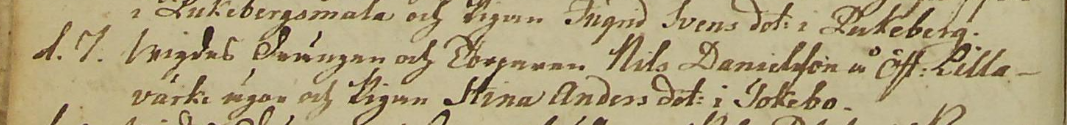 i Lukebergsmåla och Pigan Ingrid Svens dot: i Lukeberg.
d. 7. Wigdes Drängen och Torparen Nils Danielsson å Öft: Lilla-
värks ägor och Pigan Stina Anders dot: i Jokebo.